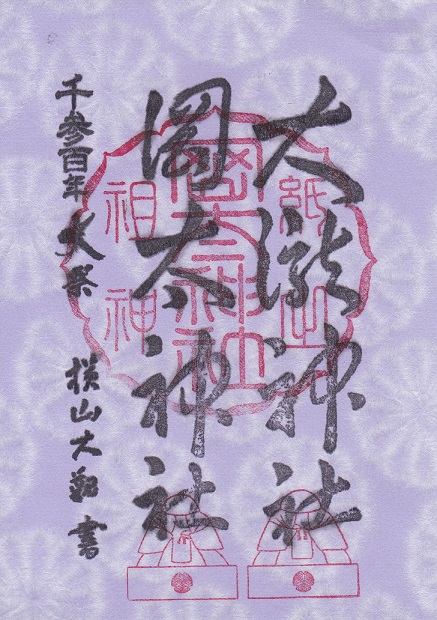 大瀧神社
岡太神社
千参百年大祭
横山大観書
紙
岡太神社
祖神